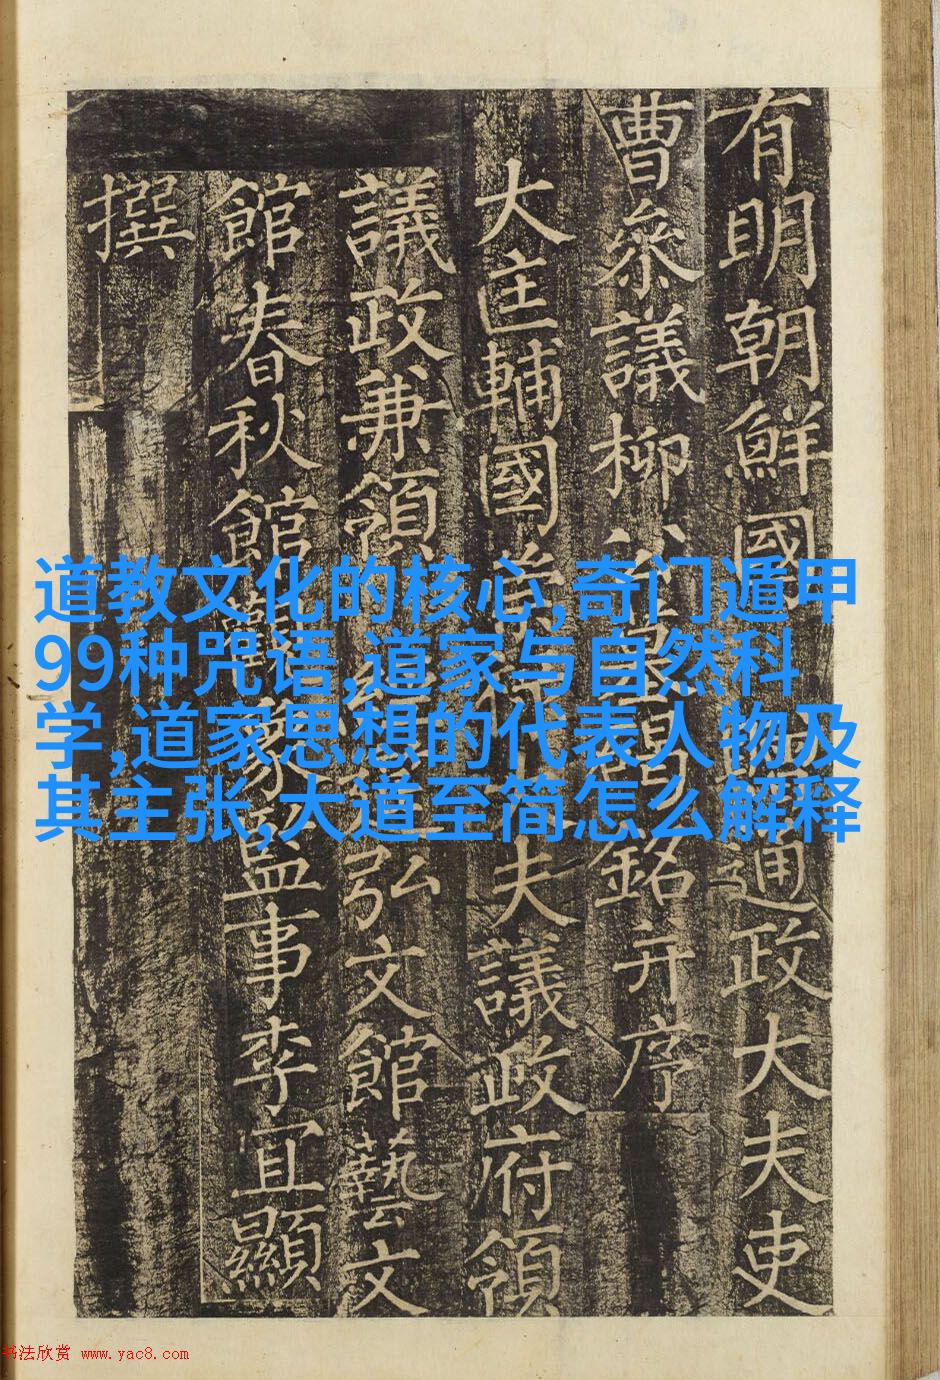 有明朝鮮國通政大夫吏
曹叅議柳公墓碣銘并序
大匡輔國崇行大夫議政府領
議政兼領弘文館藝文
館春秋館觀象監事李宜顯
撰
道教文化的核心,奇门遁甲
99种咒语,道家与自然科
学,道家思想的代表人物及
其主张,大道至简怎么解释
书法欣赏 www.yac8.com